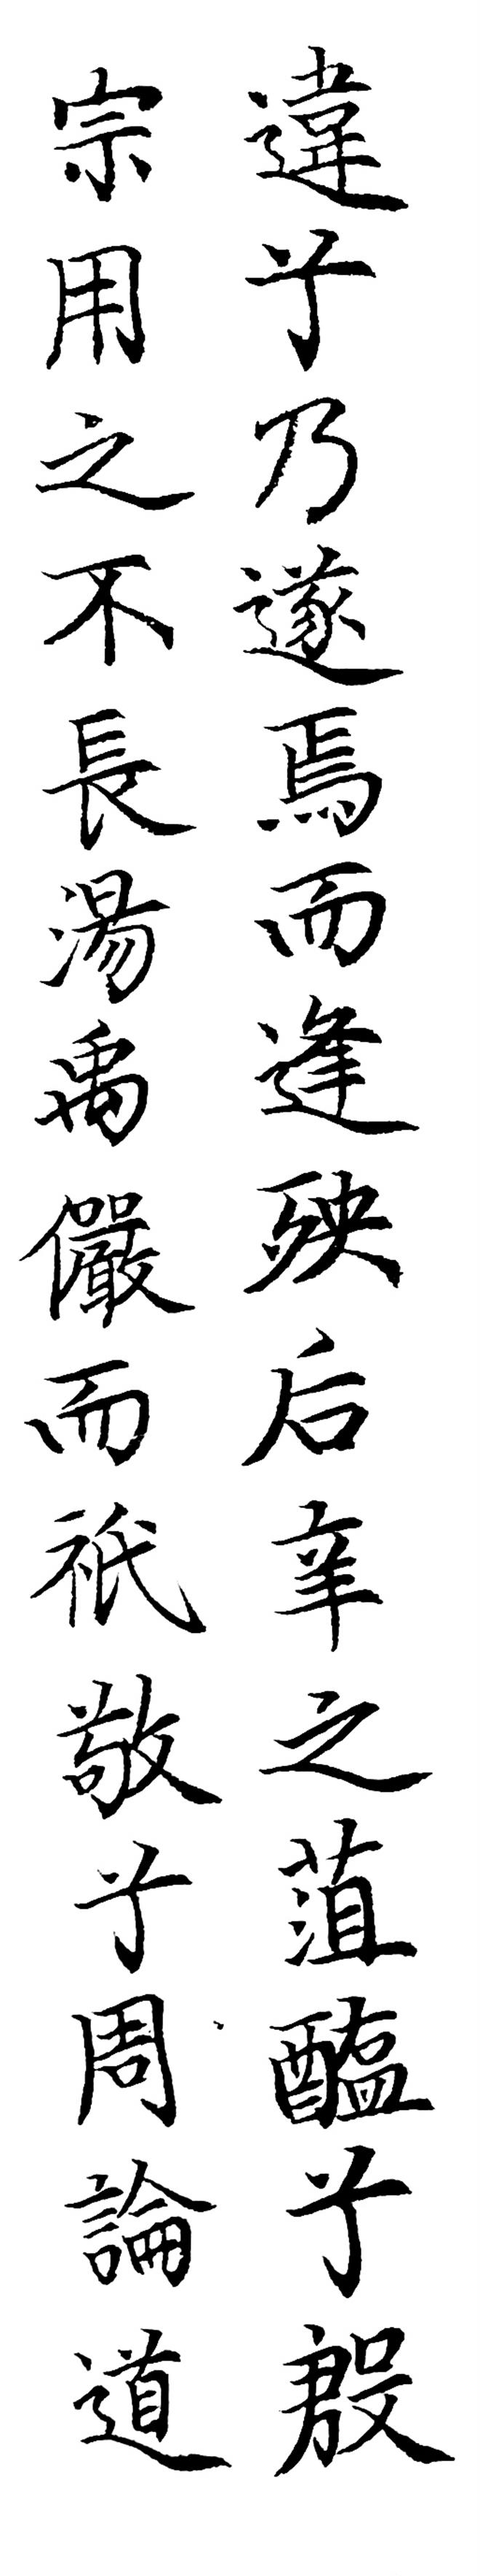 違兮乃遂焉而逢殃后辛之菹醢兮殷
宗用之不長湯禹儼而祗敬兮周論道